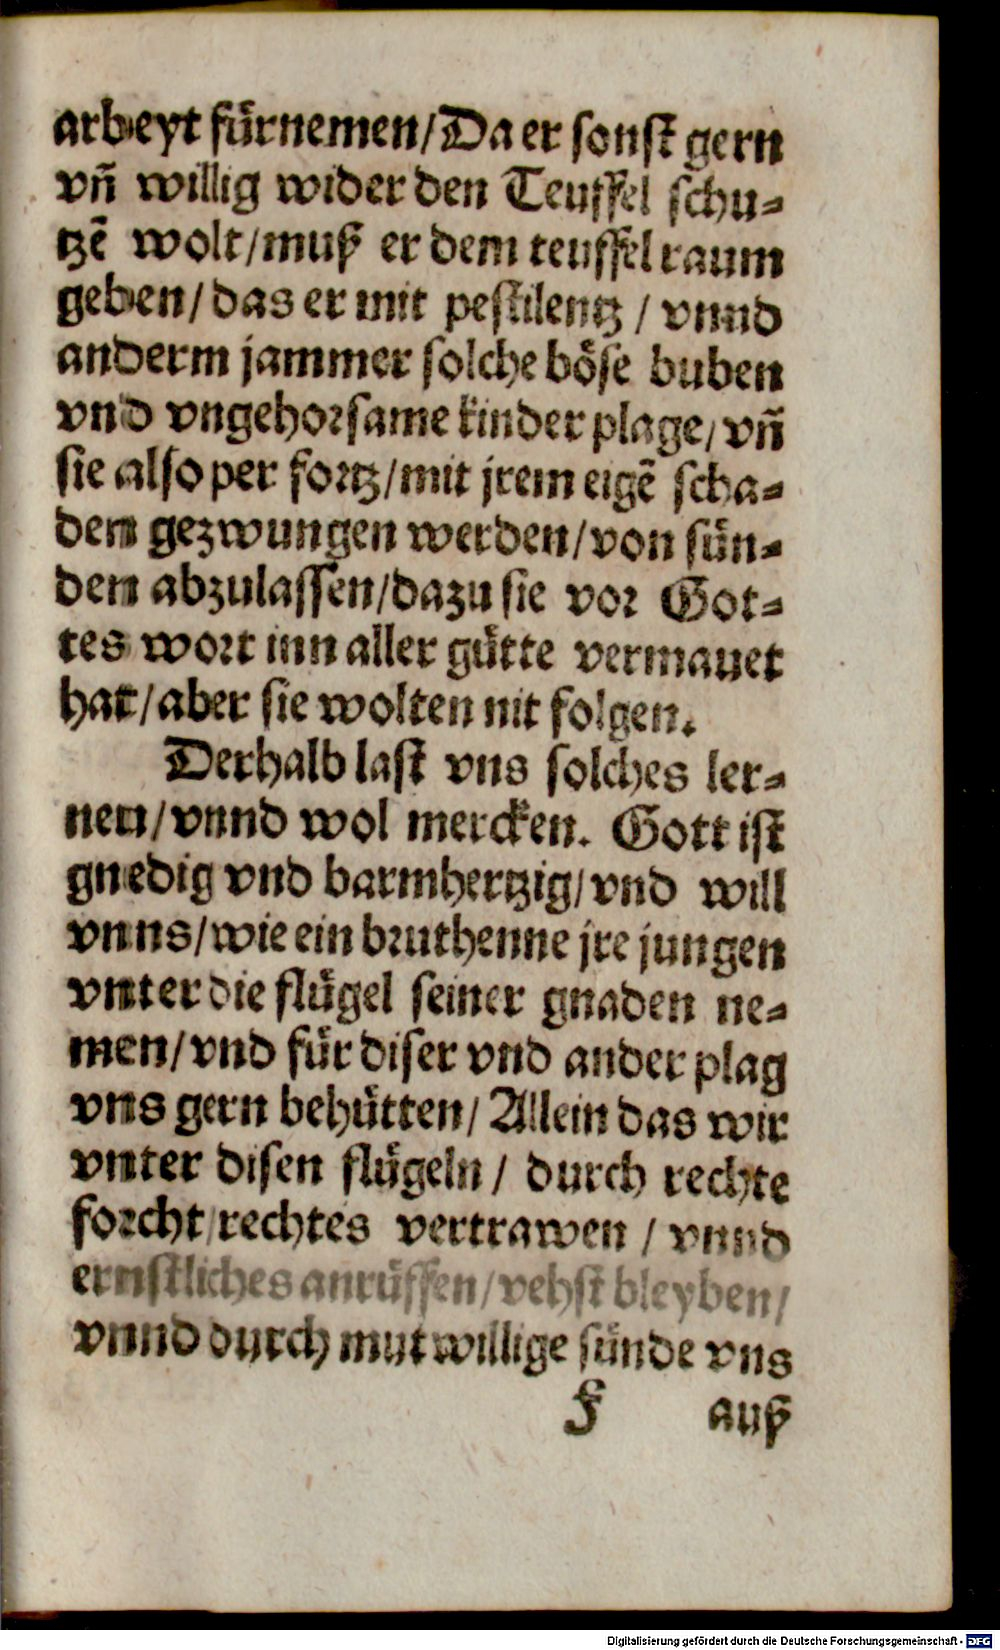 arbeyt fürnemen/Da er sonst gern
vñ willig wider den Teuffel schu-
tzẽ wolt/muß er dem teuffel raum
geben/das er mit pestilentz / vnnd
anderm jammer solche böse buben
vnd vngehorsame kinder plage/vñ
sie also per fortz/mit jrem eigẽ scha-
den gezwungen werden/von sün-
den abzulassen/dazu sie vor Got-
tes wort inn aller gütte vermanet
hat/aber sie wolten nit folgen.
Derhalb last vns solches ler-
nen/vnnd wol mercken. Gott ist
gnedig vnd barmhertzig/vnd will
vnns/wie ein bruthenne jre jungen
vnter die flügel seiner gnaden ne-
men/vnd für diser vnd ander plag
vns gern behütten/Allein das wir
vnter disen flügeln/ durch rechte
forcht/rechtes vertrawen / vnnd
ernstliches anrüffen/vehst bleyben/
vnnd durch mutwillige sünde vns
F auß
Digitalisierung gefördert durch die Deutsche Forschungsgemeinschaft - DFG